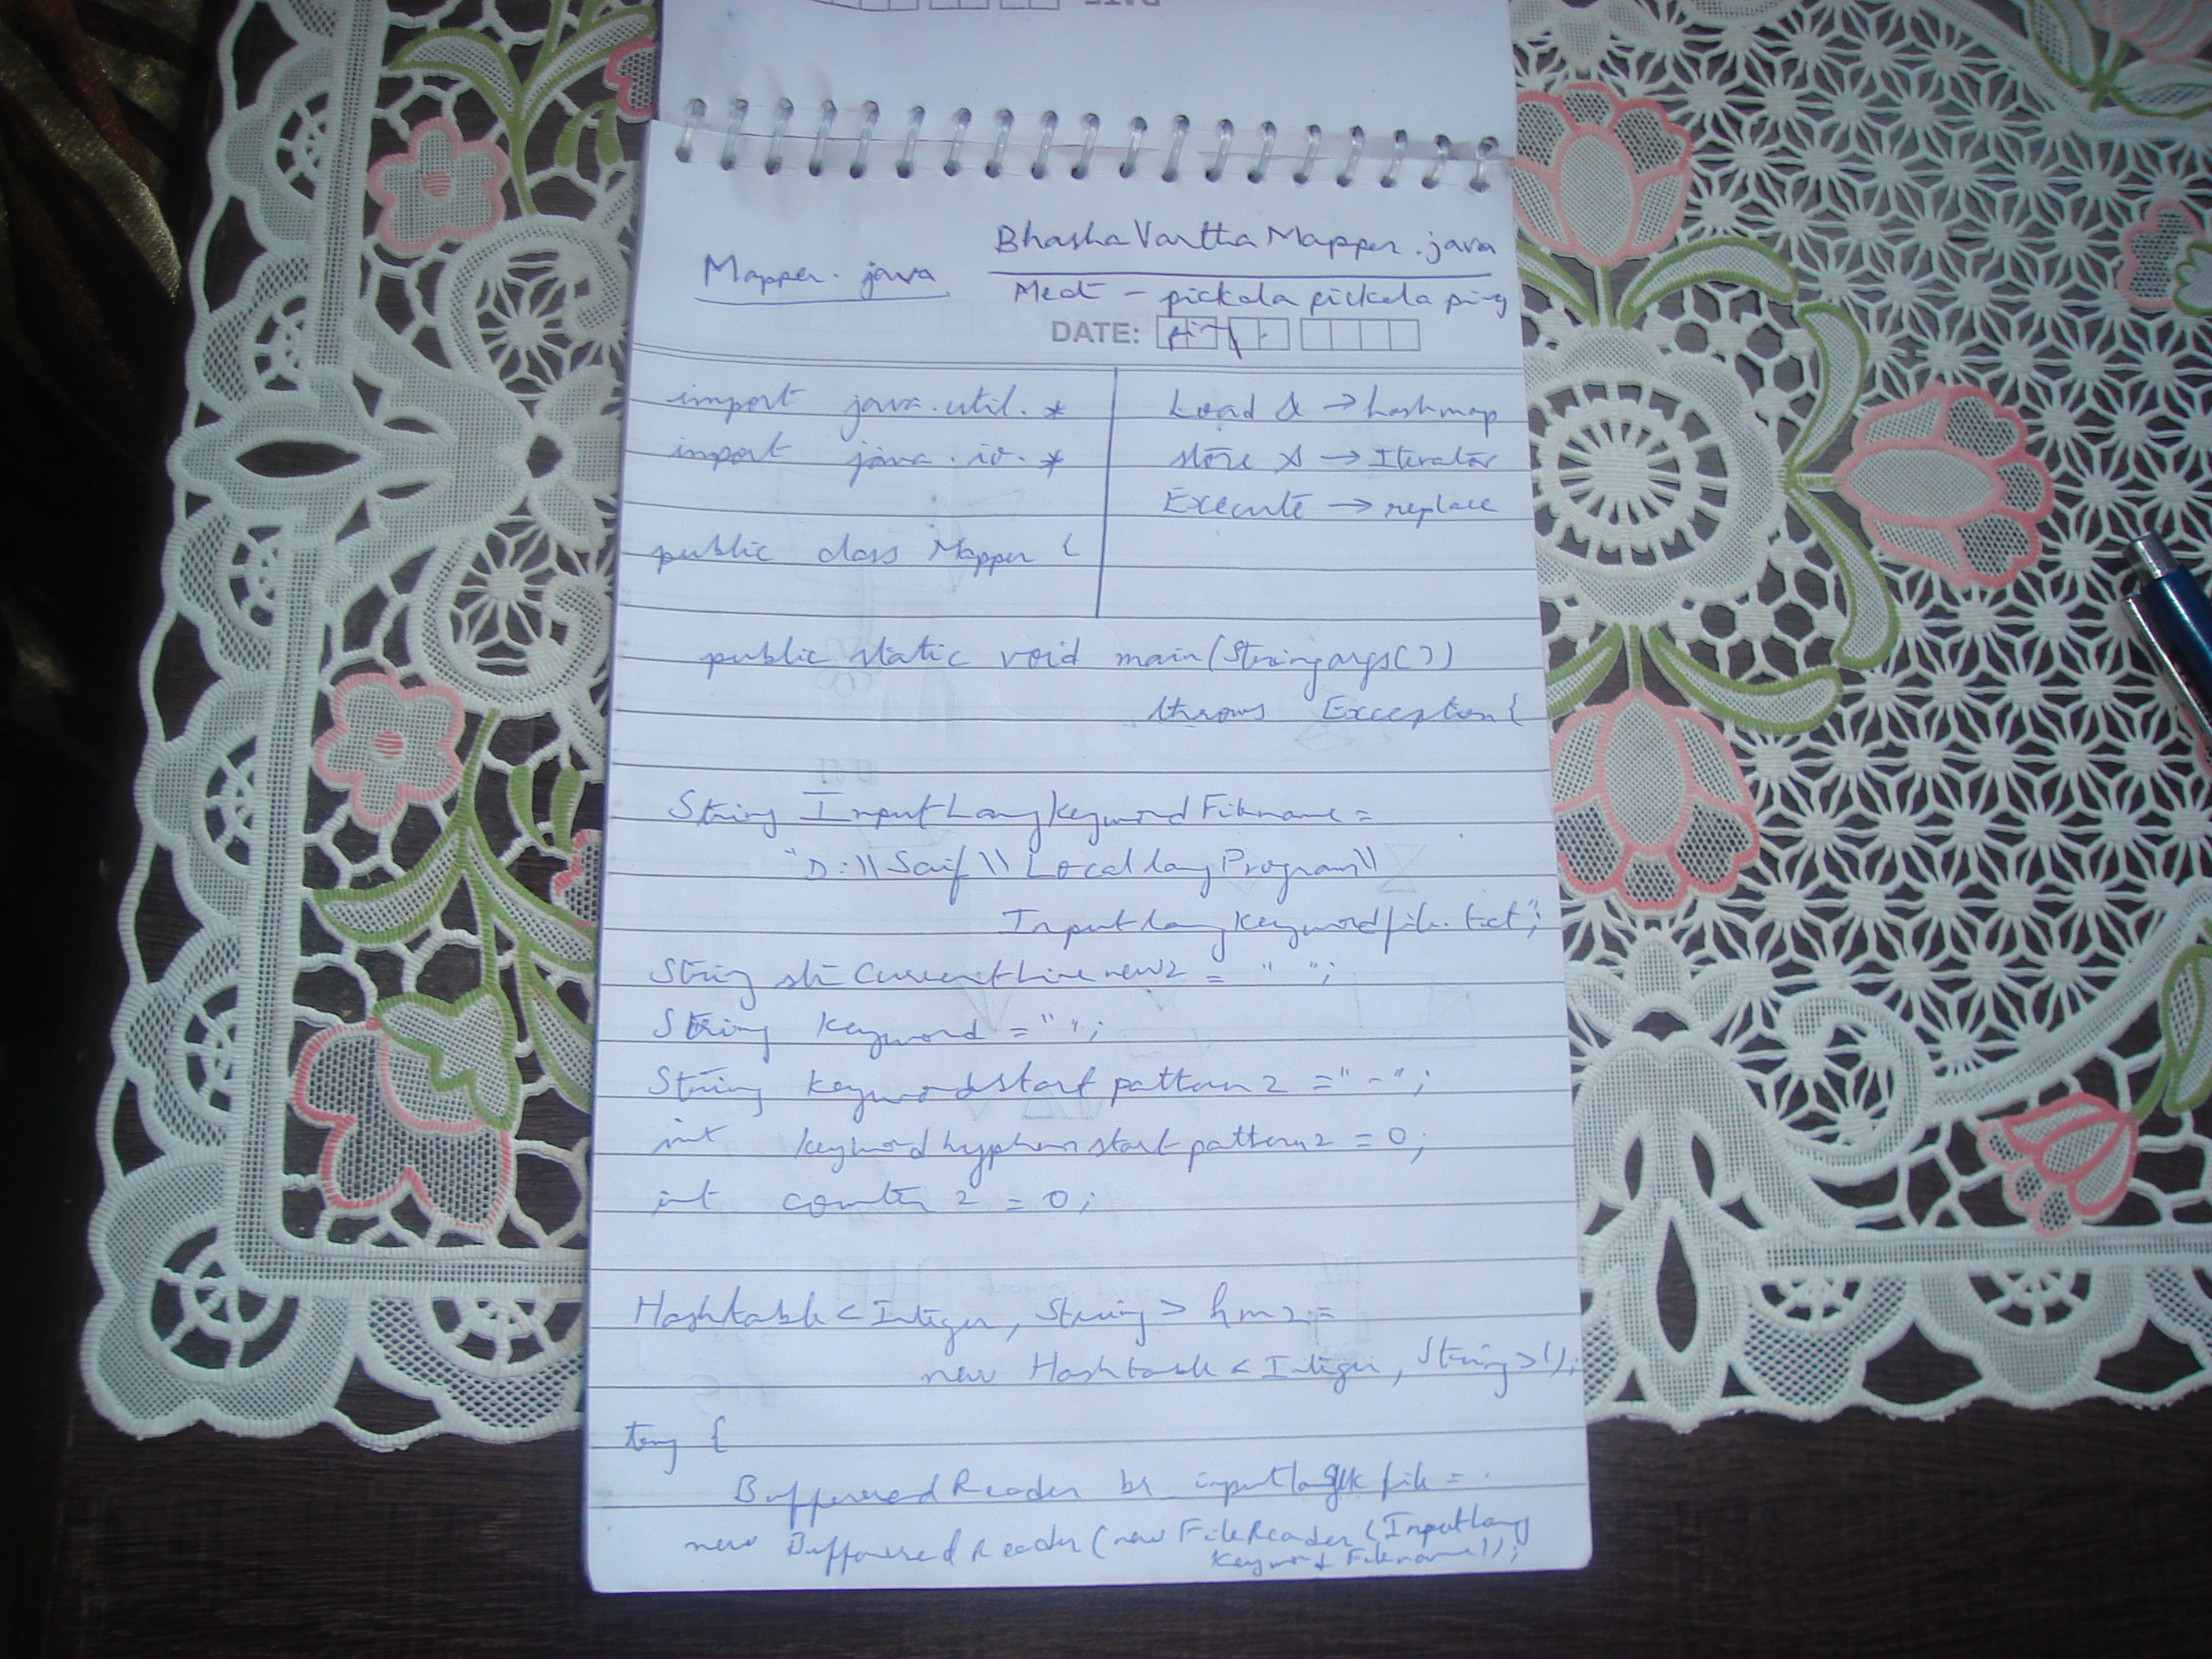 BhashaVarthaMapper.java
Mapper.java
Med - pickola pickola ping
DATE:
import java.util.*
import java.io.*
public class Mapper {
Load & → hashmap
store → Iterator
Execute → replace
public static void main(String args[])
throws Exception{
String InputLangKeywordFilename =
"D:\\Saif\\LocallangProgram\\
Inputlangkeywordfile.txt";
String strCurrentLinenew2 = " ";
String keyword = " ";
String keywordstartpattern2 = "-";
int keywordhyphenstartpattern2 = 0;
int counter2 = 0;
Hashtable<Integer, String> hm2 =
new Hashtable<Integer, String>();
try {
BufferedReader br_inputlang file =
new BufferedReader(new FileReader(InputLang
KeywordFilename));